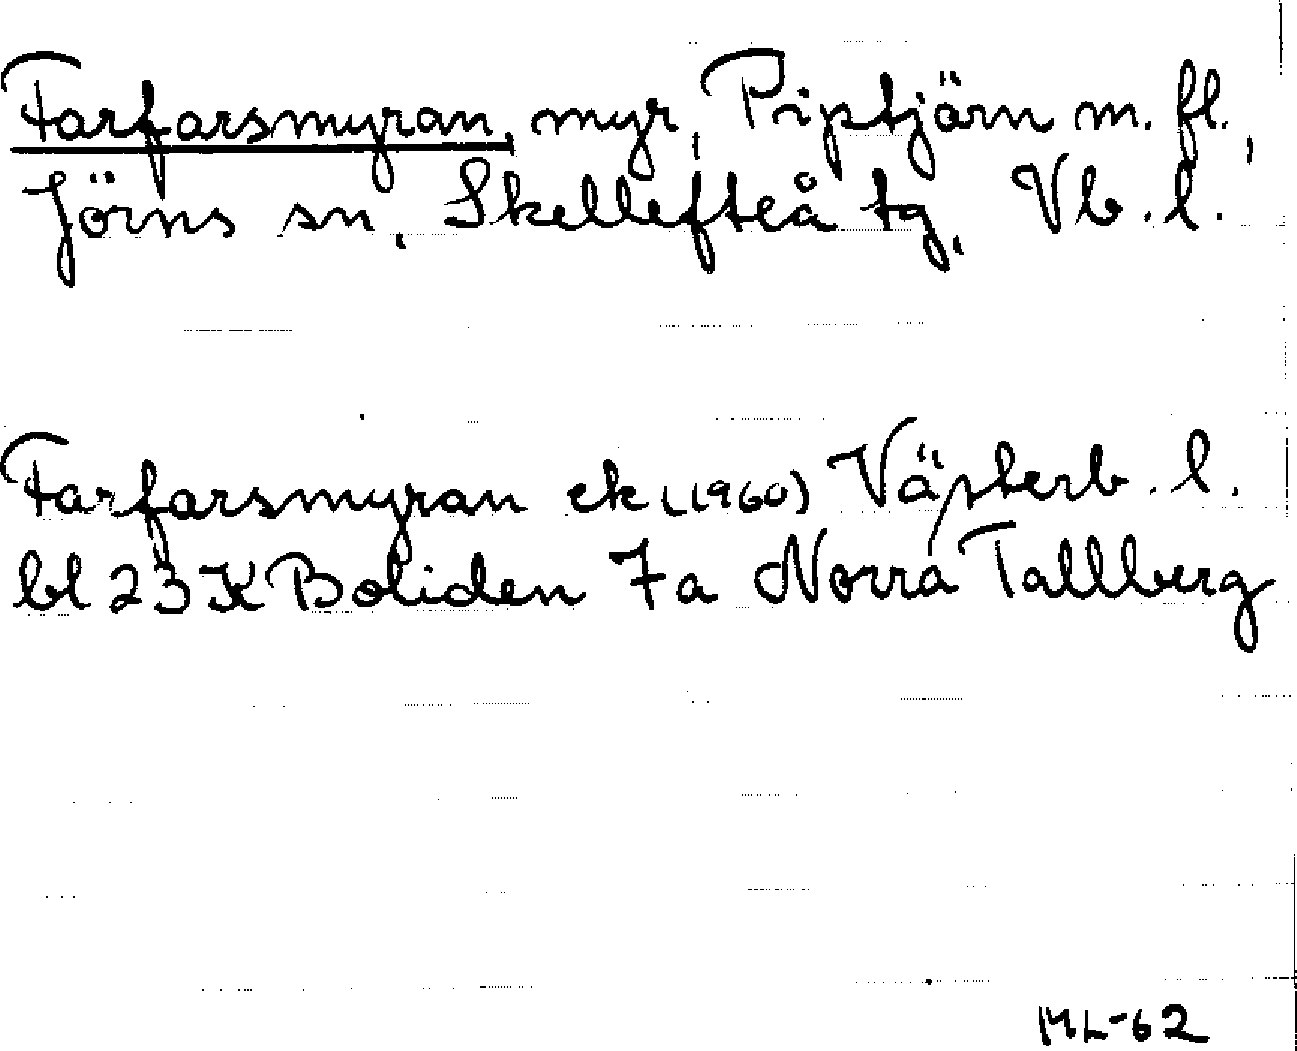 Farfarsmyran, myr, Piptjärn m. fl.,
Jörns sn, Skellefteå tg, Vb. l.
Farfarsmyran ek (1960) Västerb. l.
bl 23 K Boliden 7a Norra Tallberg
ML-62